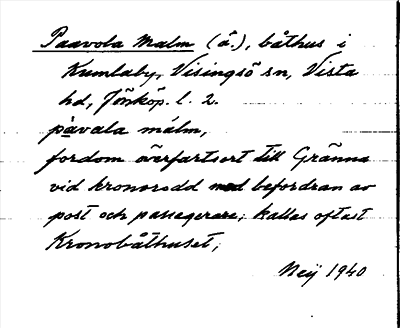 Paavola Malm (ä.), båthus i
Kumlaby, Visingsö sn, Vista
hd, Jönköp. l. 2.
pàvala málm,
fordom överfartsort till Gränna
vid kronorodd med befordran av
post och passagerare; kallas oftast
Kronobåthuset;
Meij 1940